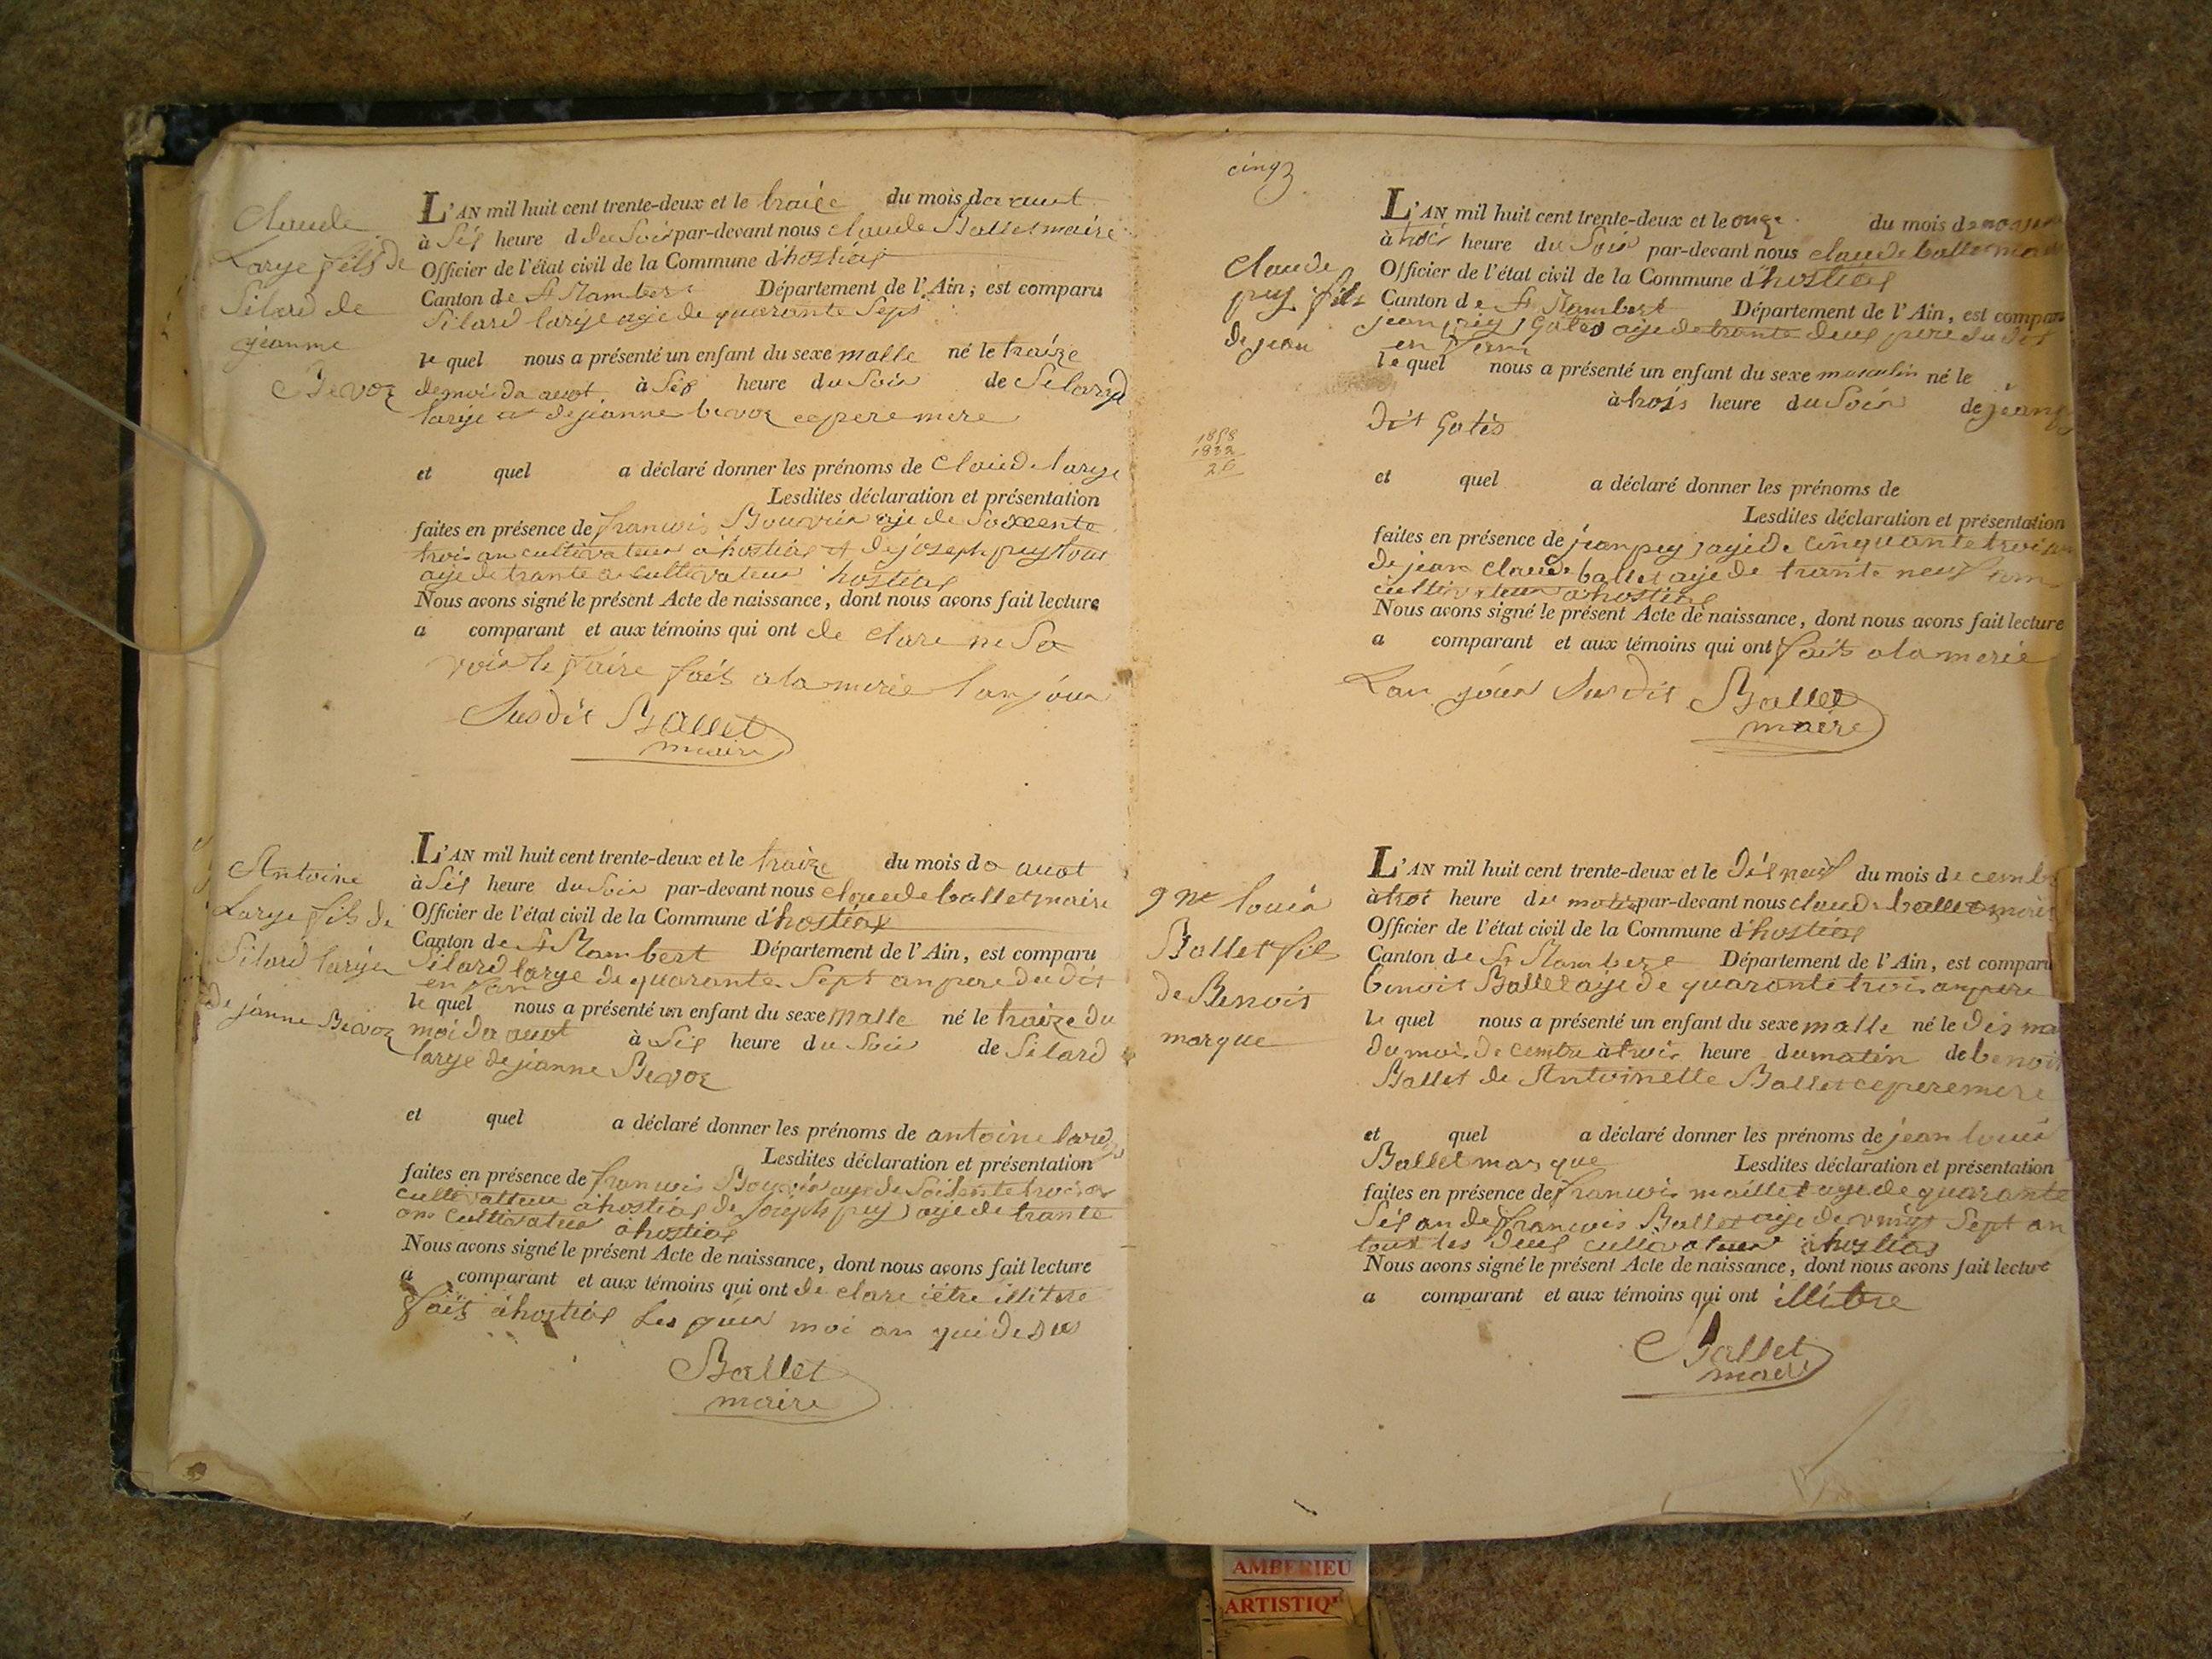 Claude
Large fils de
Silard de
jeanne
Bevoz
L'AN mil huit cent trente-deux et le traize du mois da auot
à Sis heure d du Soir par-devant nous claude Ballet maire
Officier de l'état civil de la Commune d'hostias
Canton de St Rambert Département de l'Ain; est comparu
Silard large age de quarante Sept
le quel nous a présenté un enfant du sexe malle né le traize
du moi da auot à Sis heure du Soir de Silard
large et de jeanne bevoz ce pere mere
et quel a déclaré donner les prénoms de Claude large
Lesdites déclaration et présentation
faites en présence de francois Bouvier aje de Soixente
trois an cultivateur a hostias et de joseph puy tous
aije de trante an cultivateur hostias
Nous avons signé le présent Acte de naissance, dont nous avons fait lecture
a comparant et aux témoins qui ont de clare ne Sa
voir le faire fait a la merie lan jour
Susdit Ballet
maire
Antoine
Large fils de
Silard large
de jeanne Bevoz
L'AN mil huit cent trente-deux et le traize du mois da auot
à Sis heure du Soir par-devant nous claude ballet maire
Officier de l'état civil de la Commune d'hostias
Canton de St Rambert Département de l'Ain, est comparu
Silard large de quarante Sept an pere du dit
en fan
le quel nous a présenté un enfant du sexe malle né le traize du
moi da auot à Sis heure du Soir de Silard
large de jeanne Bevoz
et quel a déclaré donner les prénoms de antoine large
Lesdites déclaration et présentation
faites en présence de francois Bouvier aye de Soisente trois an
cultivatteur a hostias de Joseph puy aije de trante
ans cultivateur a hostias
Nous avons signé le présent Acte de naissance, dont nous avons fait lecture
a comparant et aux témoins qui ont de clare iétre illitere
fait a hostias Les jour moi an qui desus
Ballet
maire
claude
puy fils
de jean
1858
1832
26
L'AN mil huit cent trente-deux et le onze du mois de
à trois heure du Soir par-devant nous claude ballet
Officier de l'état civil de la Commune d'hostias
Canton de St Rambert Département de l'Ain, est comparu
jean puy Gotès aije de trante deus pere du dit
en fant
le quel nous a présenté un enfant du sexe masculin né le
à trois heure du Soir de jean
dit Gotès
et quel a déclaré donner les prénoms de
Lesdites déclaration et présentation
faites en présence de jean puy aijé de cinquante trois an
de jean claude ballet aije de trante neuf ans
cultivateur a hostias
Nous avons signé le présent Acte de naissance, dont nous avons fait lecture
a comparant et aux témoins qui ont fait a la merie
Lan jour Susdit Ballet
maire
louis
Ballet fils
de Benoit
marque
L'AN mil huit cent trente-deux et le dis neuf du mois de cembre
à troi heure du matin par-devant nous claude ballet maire
Officier de l'état civil de la Commune d'hostias
Canton de St Rambere Département de l'Ain, est comparu
benoit Ballet aije de quarante trois an pere
le quel nous a présenté un enfant du sexe malle né le dis
du moi de cembre à trois heure du matin de benoit
Ballet de Antoinette Ballet ce pere mere
et quel a déclaré donner les prénoms de jean louis
Ballet marque Lesdites déclaration et présentation
faites en présence de francois maillet aije de quarante
Sis an de francois Ballet aije de vingt Sept an
tout les deus cultivateur a hostias
Nous avons signé le présent Acte de naissance, dont nous avons fait lecture
a comparant et aux témoins qui ont illitere
Ballet
maire
AMBERIEU
ARTISTIQ